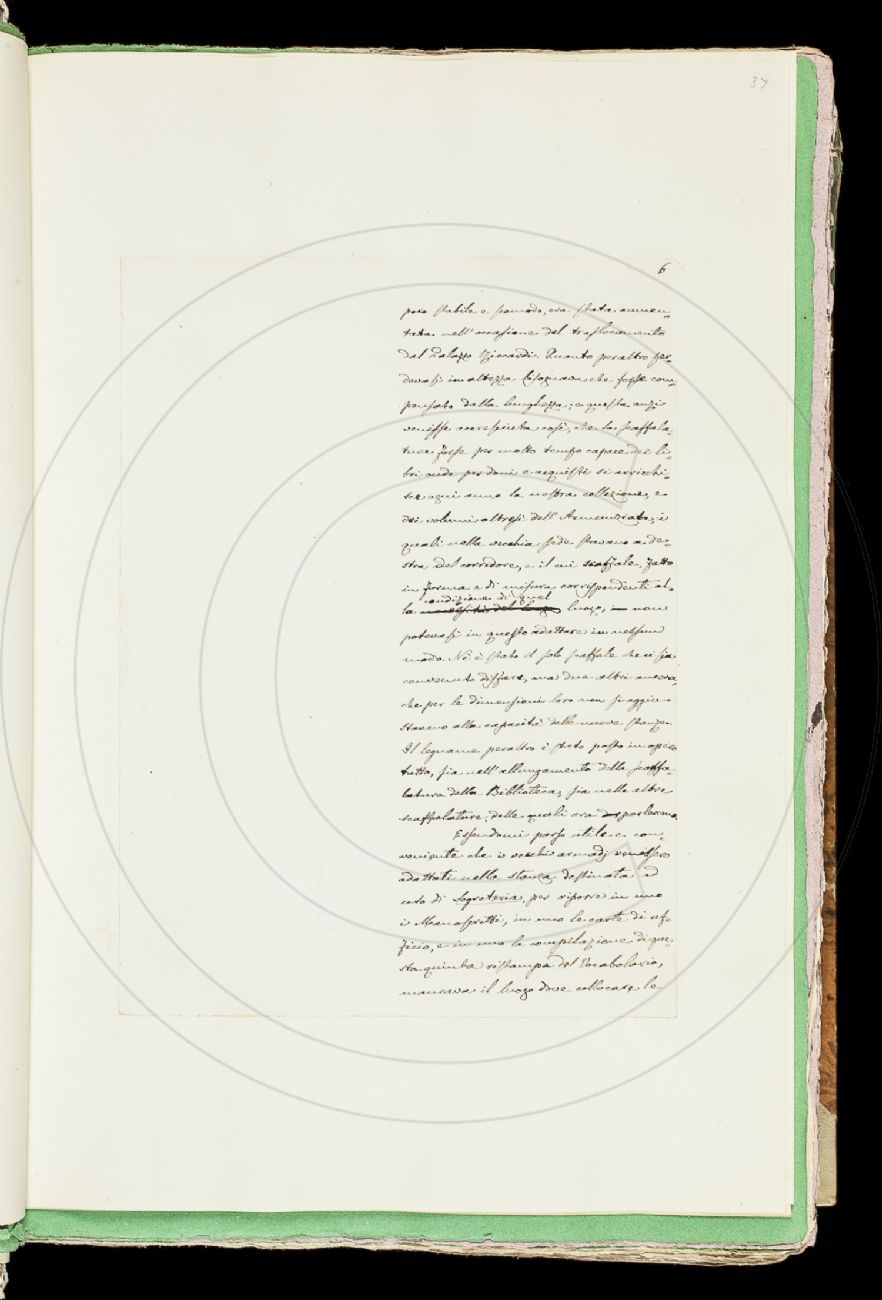 37
6
poco stabile e comodo, era stata aumen=
tata nell'occasione del traslocamento
dal Palazzo Riccardi. Quanto peraltro per=
devasi in altezza bisognava che fosse com=
pensato dalla lunghezza; e questa anzi
venisse accresciuta così, che la scaffala=
tura fosse per molto tempo capace dei li=
bri onde per doni e acquisti si arricchi=
sce ogni anno la nostra collezione, e
dei volumi altresì dell'Annunziata, i
quali nella vecchia sede stavano a de=
stra del corridore, e il cui scaffale, fatto
in forma e di misura corrispondenti al=
condizione di quel
la necessità del luogo luogo, in non
potevasi in questo adattare in nessun
modo. Nè è stato il solo scaffale che ci sia
convenuto disfare, ma due altri ancora,
che per le dimensioni loro non si aggiu=
stavano alla capacità delle nuove stanze.
Il legname peraltro è stato posto in opera
tutto, sia nell'allungamento della scaffa=
latura della Biblioteca, sia nelle altre
scaffalature, delle quali ora parleremo.
Essendomi parso utile e con=
veniente che i vecchi armadj venissero
adattati nella stanza destinata ad
uso di Segreteria, per riporre in uno
i Manoscritti, in uno le carte di uf=
ficio, e in uno la compilazione di que=
sta quinta ristampa del Vocabolario,
mancava il luogo dove collocare le